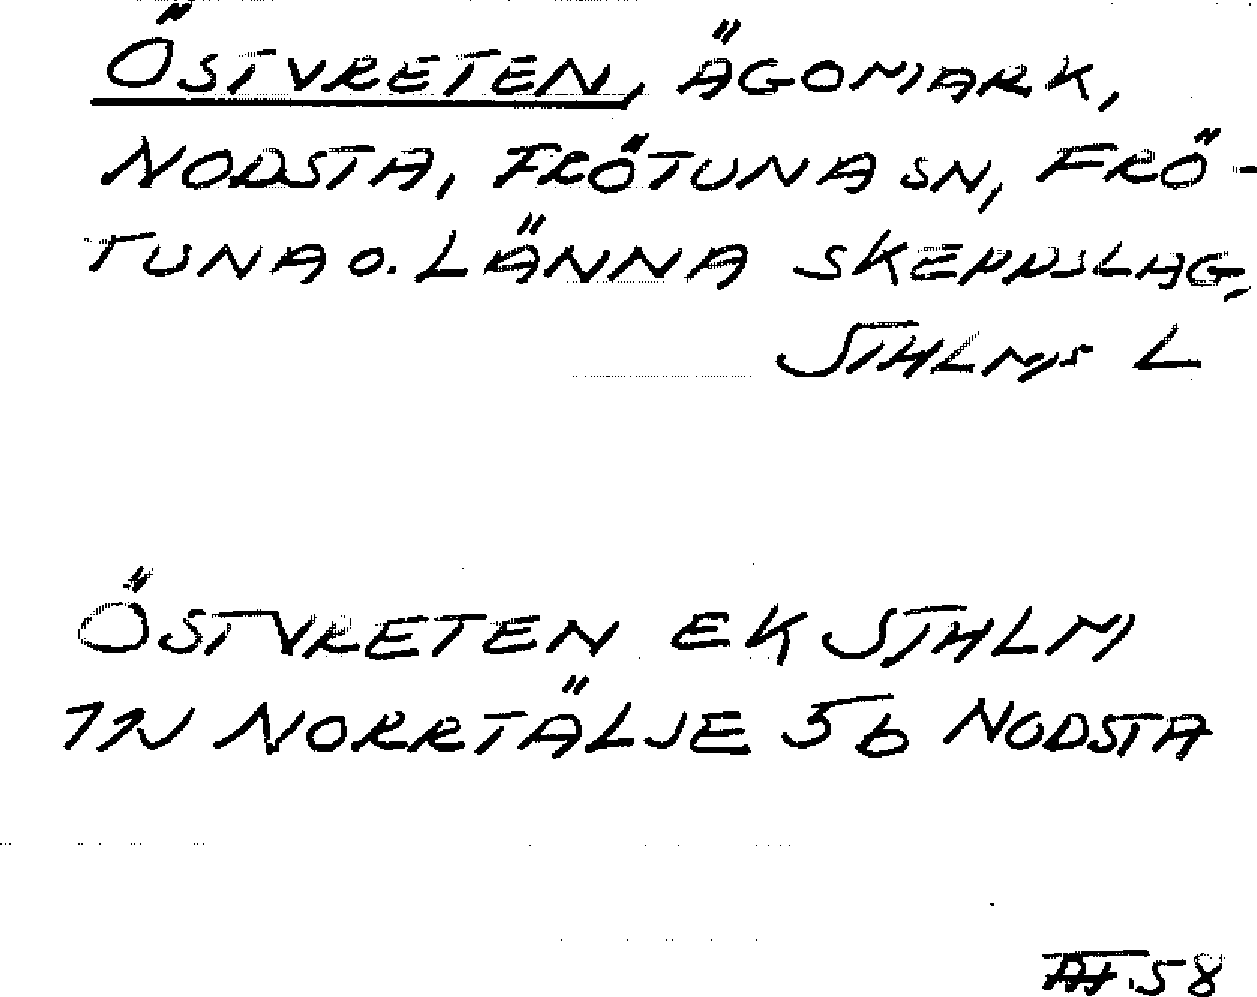 ÖSTVRETEN, ÄGOMARK,
NODSTA, FRÖTUNA SN, FRÖ-
TUNA O. LÄNNA SKEPPSLAG,
STHLMS L
ÖSTVRETEN EK STHLM
11N NORRTÄLJE 5b NODSTA
58